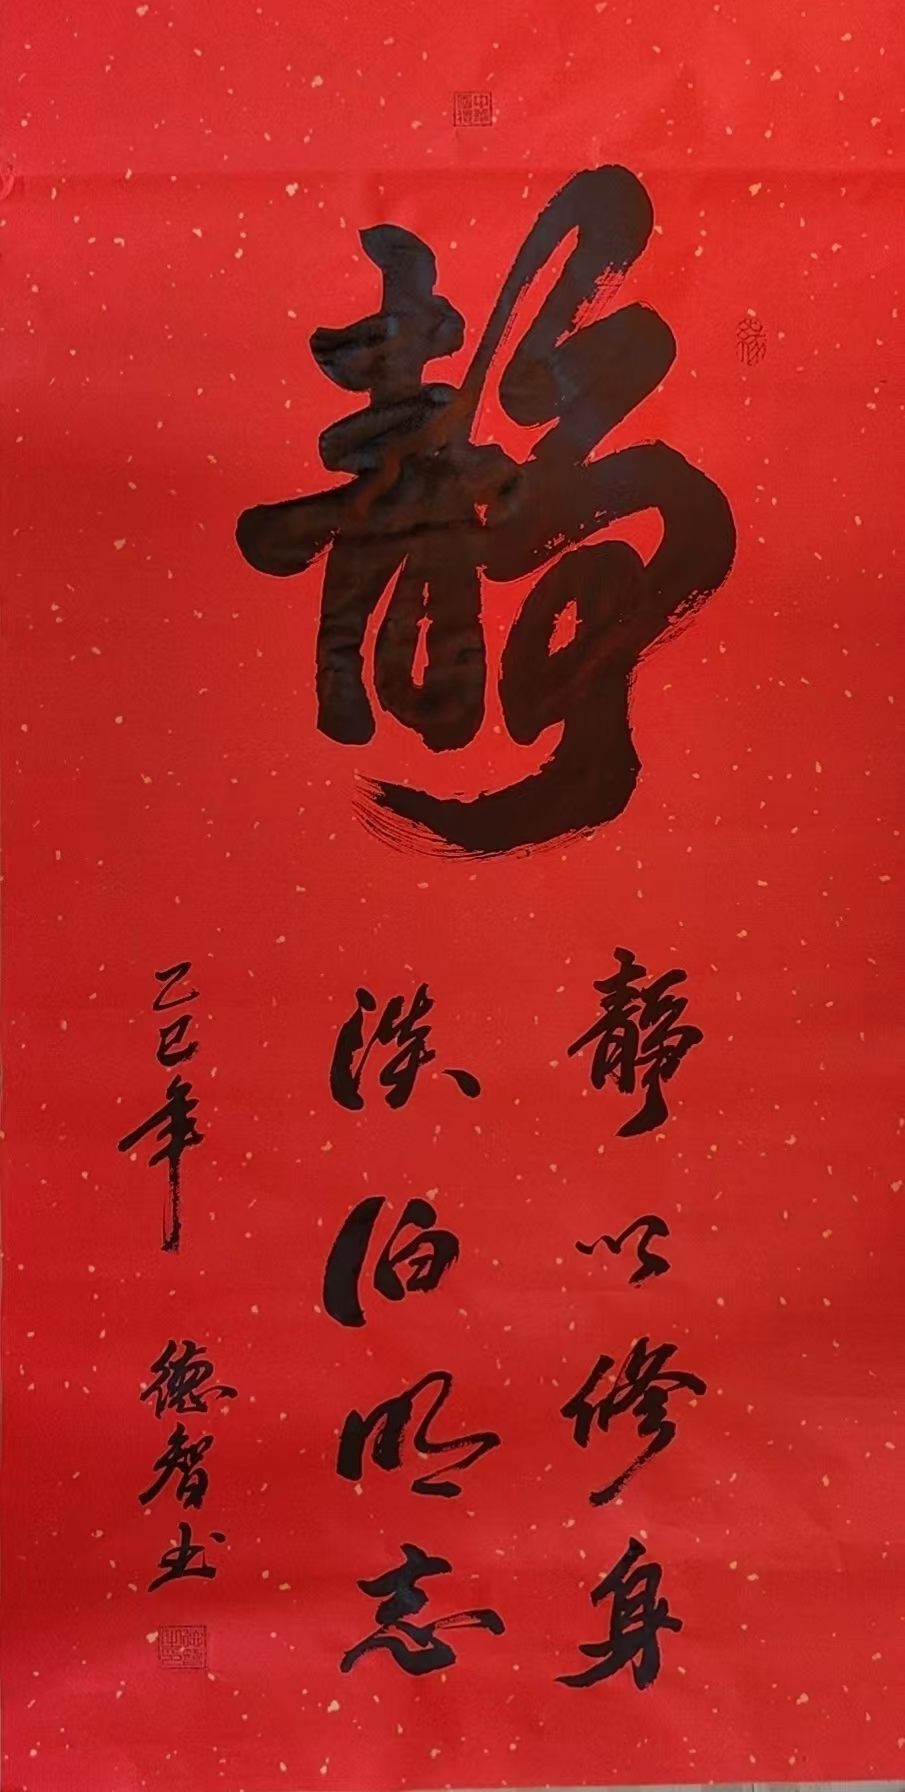 靜
靜以修身
淡泊明志
乙巳年 德智书